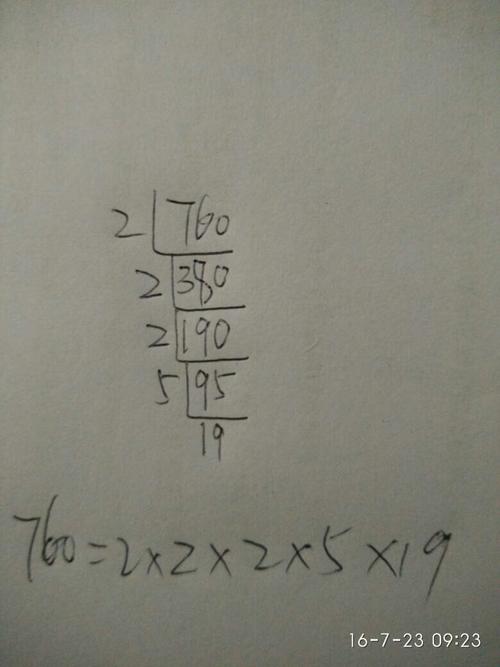 2 760
2 380
2 190
5 95
19
760=2×2×2×5×19
16-7-23 09:23